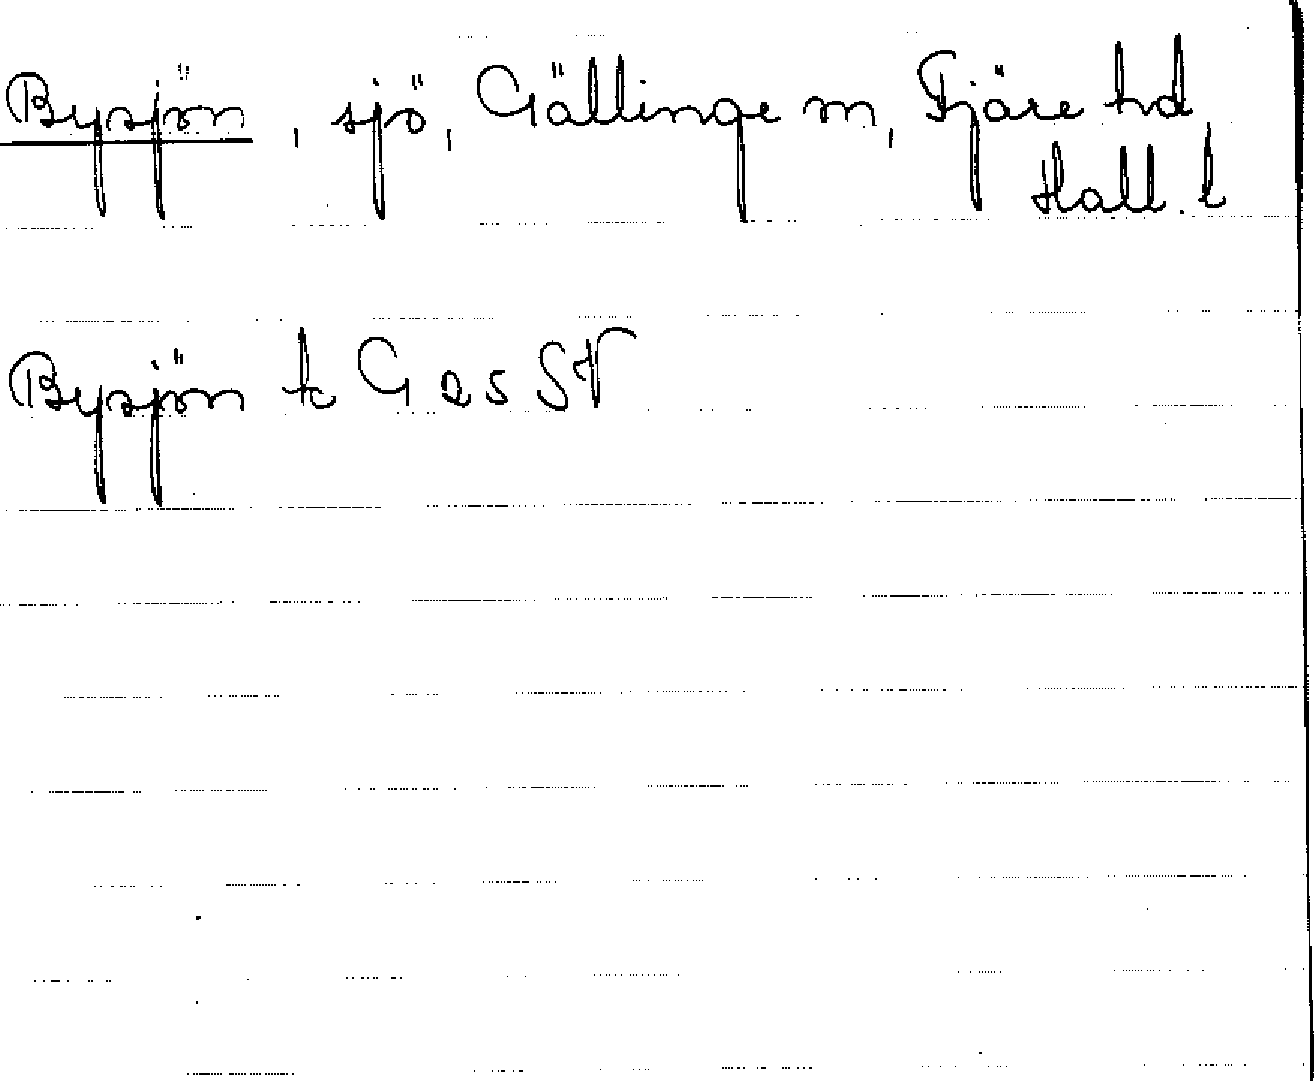 Bysjön, sjö, Gällinge sn, Fjäre hd
Hall. l
Bysjön tc G 25 SV